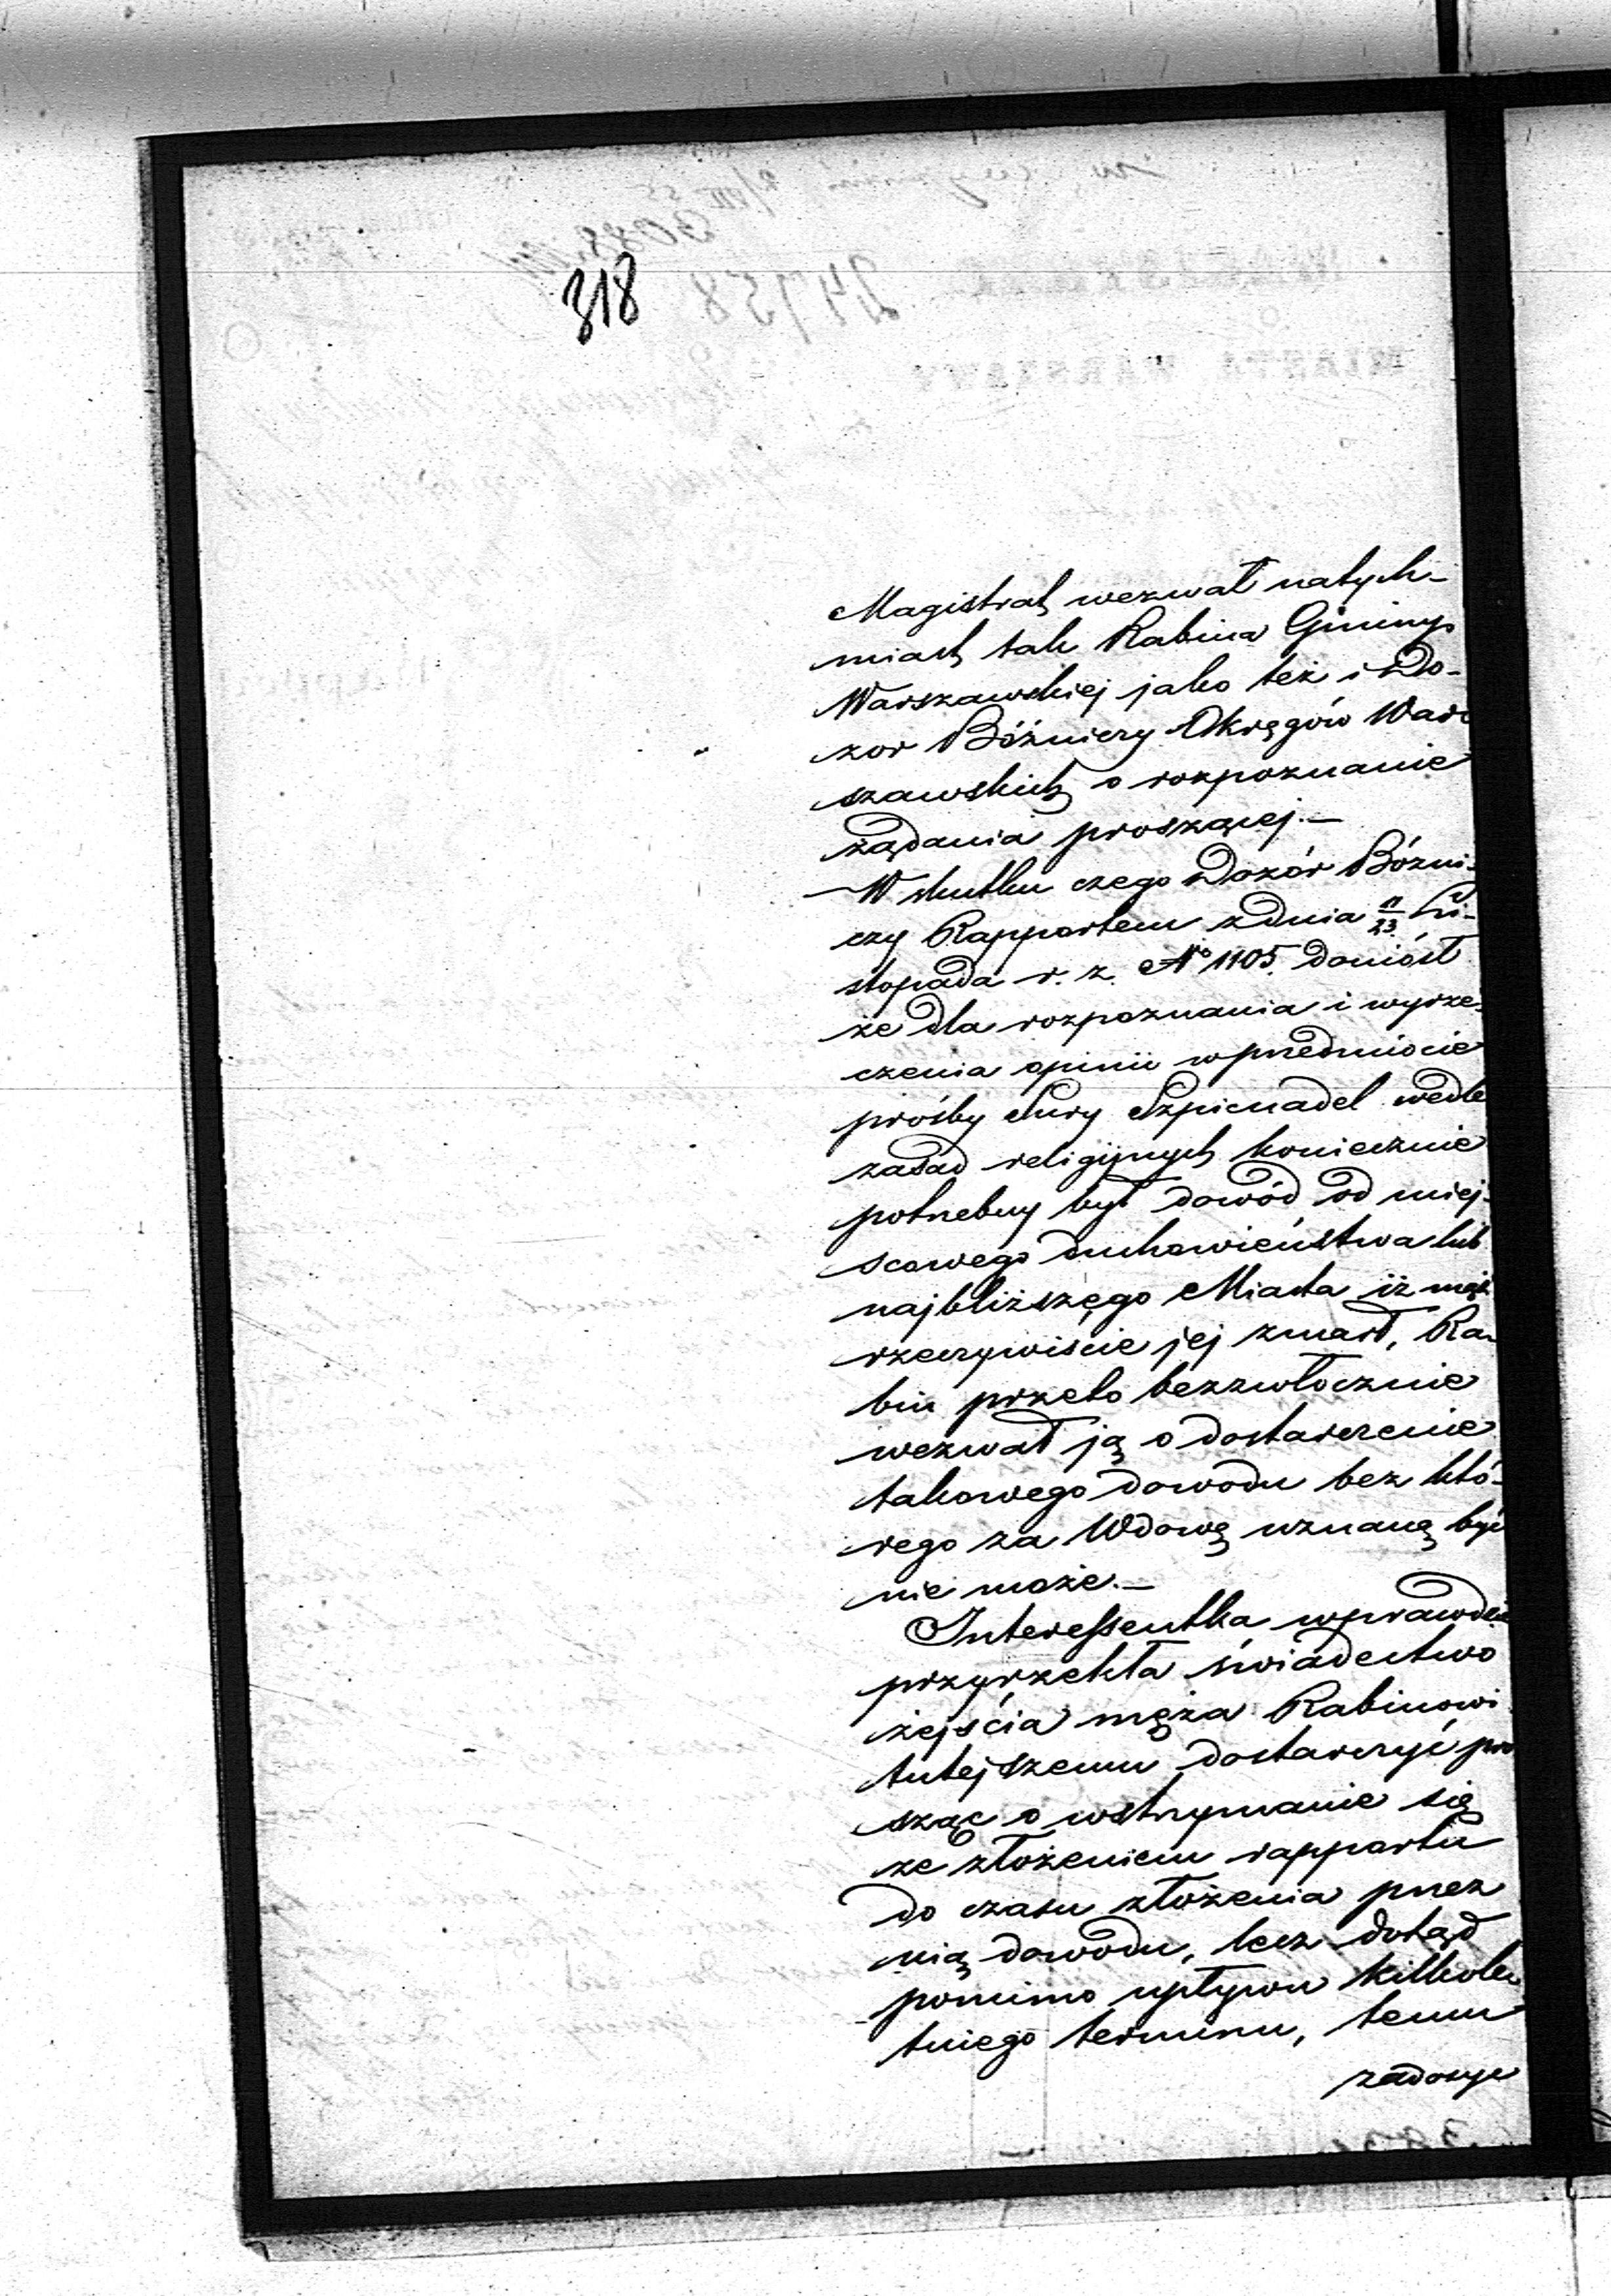 318
Magistrat wezwał natych-
miast tak Rabina Gminy
Warszawskiej jako też i Do-
zor Bóżniczy Okręgów War-
szawskich o rozpoznanie
żądania proszącej.—
W skutku czego Dozór Bóżni-
czy Rapportem z dnia 11/23 Li-
stopada r. z. No 1105. doniósł
że dla rozpoznania i wyrze-
czenia opinii w przedmiocie
prośby Sury Szpicnadel wedle
zasad religijnych koniecznie
potrzebny był dowód od miej-
scowego duchowieństwa lub
najbliższego Miasta iż mąż
rzeczywiście jej zmarł, Ra-
bin przeto bezzwłocznie
wezwał ją o dostarczenie
takowego dowodu bez któ-
rego za Wdowę uznaną być
nie może.—
Interessentka wprawdzie
przyrzekła świadectwo
zejścia męża Rabinowi
tutejszemu dostarczyć pro
sząc o wstrzymanie się
ze złożeniem rapportu
do czasu złożenia przez
nią dowodu, lecz dotąd
pomimo upływu kilkole
tniego terminu, temu
zadosyć